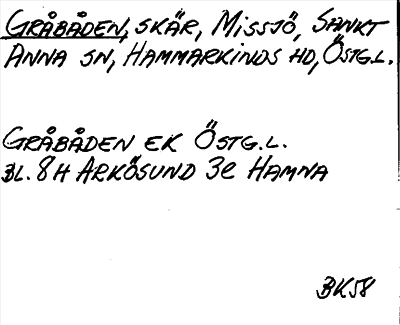 GRÅBÅDEN, SKÄR, MISSJÖ, SANKT
ANNA SN, HAMMARKINDS HD, ÖSTG.L.
GRÅBÅDEN EK ÖSTG.L.
BL. 8H ARKÖSUND 3e HAMNA
BK58